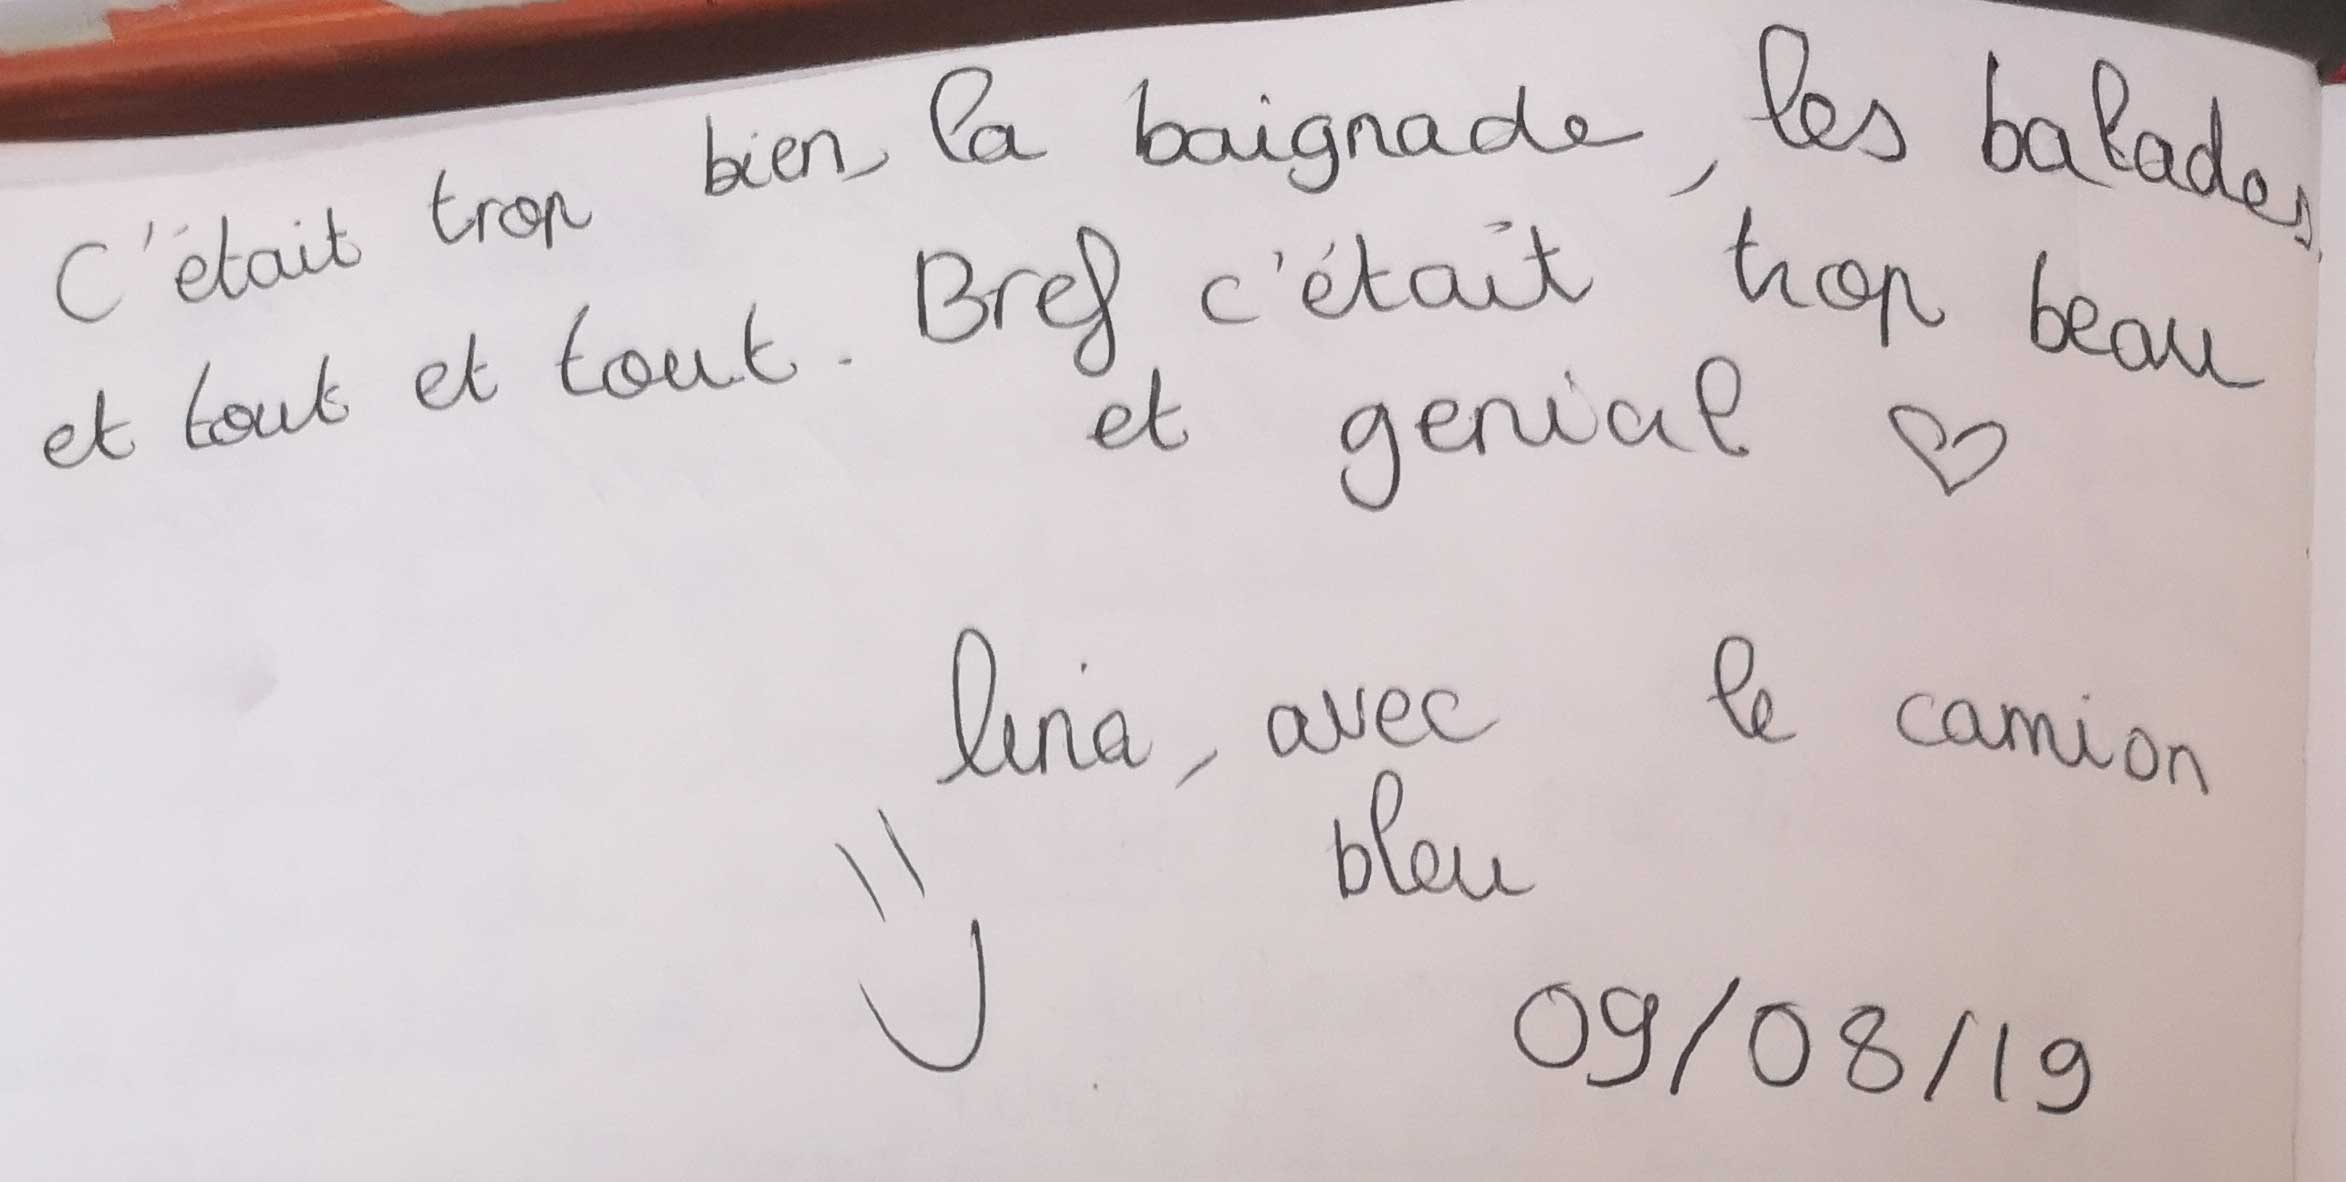 C'était trop bien, la baignade, les balades,
et tout et tout. Bref c'était trop beau
et genial ♡
lina, avec le camion
bleu
09/08/19